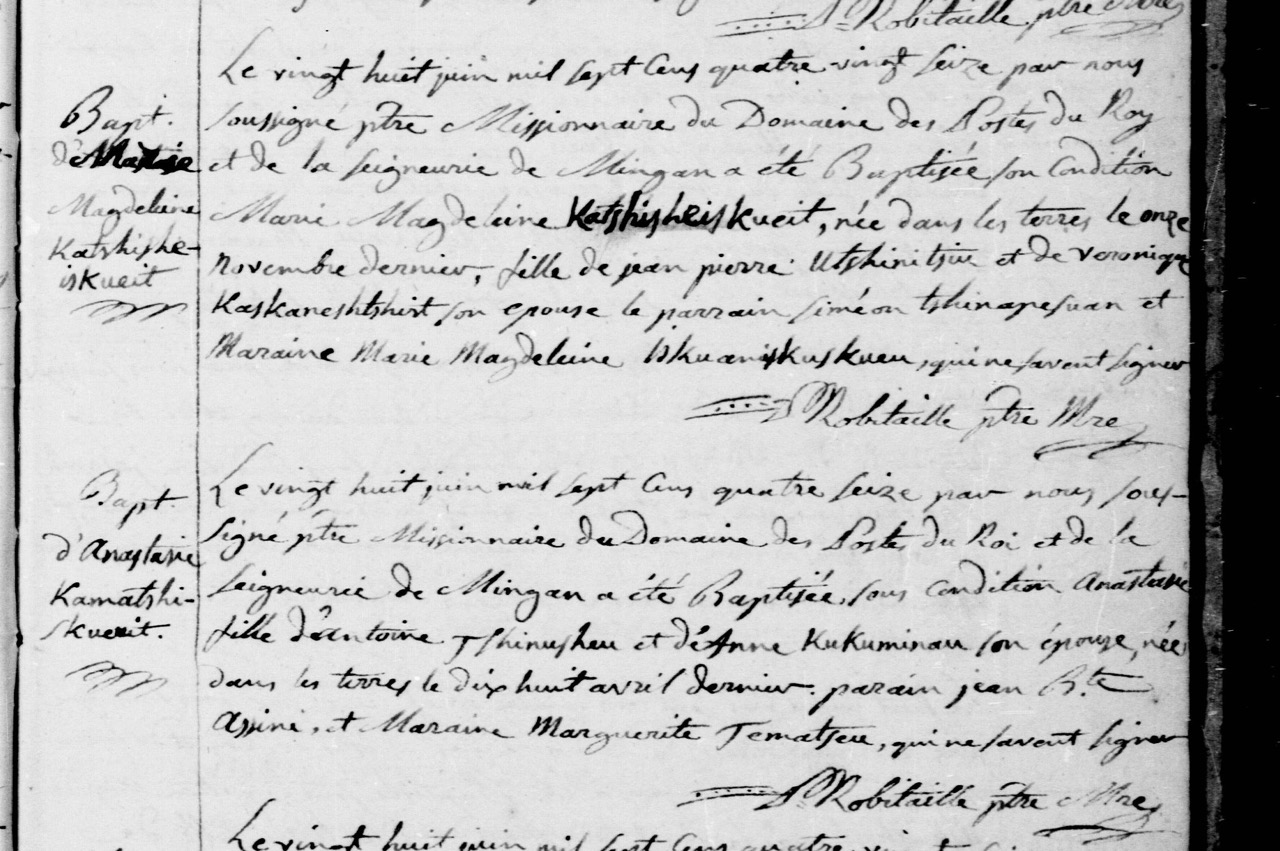 P. Robitaille ptre Mre
Le vingt huit juin mil sept Cens quatre-vingt seize par nous
Bapt.
soussigné ptre Missionnaire du Domaine des Postes du Roy
d'Marie
et de la seigneurie de Mingan a été Baptisée son Condition
Magdeleine
Marie Magdeleine Katshisheiskueit, née dans les terres le onze
Katshishe-
iskueit
novembre dernier, fille de jean pierre Utshinitsiu et de veronique
Kaskaneshtshist son epouse le parrain siméon tshinapesuan et
Maraine Marie Magdeleine Iskuaniskuskueu, qui ne savent signer
P. Robitaille ptre Mre
Bapt.
Le vingt huit juin mil sept Cens quatre seize par nous sous-
d'Anastasie
signé ptre Missionnaire du Domaine des Postes du Roi et de la
Kamatshi-
seigneurie de Mingan a été Baptisée, sous condition Anastasie
skueuit.
fille d'antoine Tshinusheu et d'Anne Kukuminau son épouse, née
dans les terres le dix huit avril dernier. parain jean B.te
Assini, et Maraine Marguerite Tematseu, qui ne savent signer
P. Robitaille ptre Mre
Le vingt huit juin mil sept Cens quatre